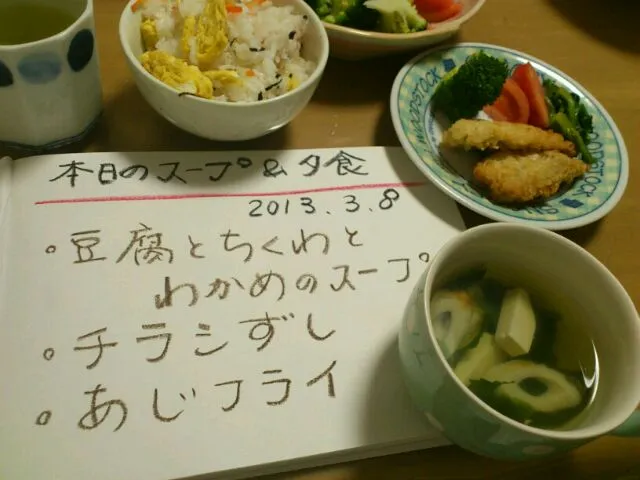 本日のスープ&夕食
2013.3.8
・豆腐とちくわと
わかめのスープ
・チラシずし
・あじフライ
WOODSTOCK